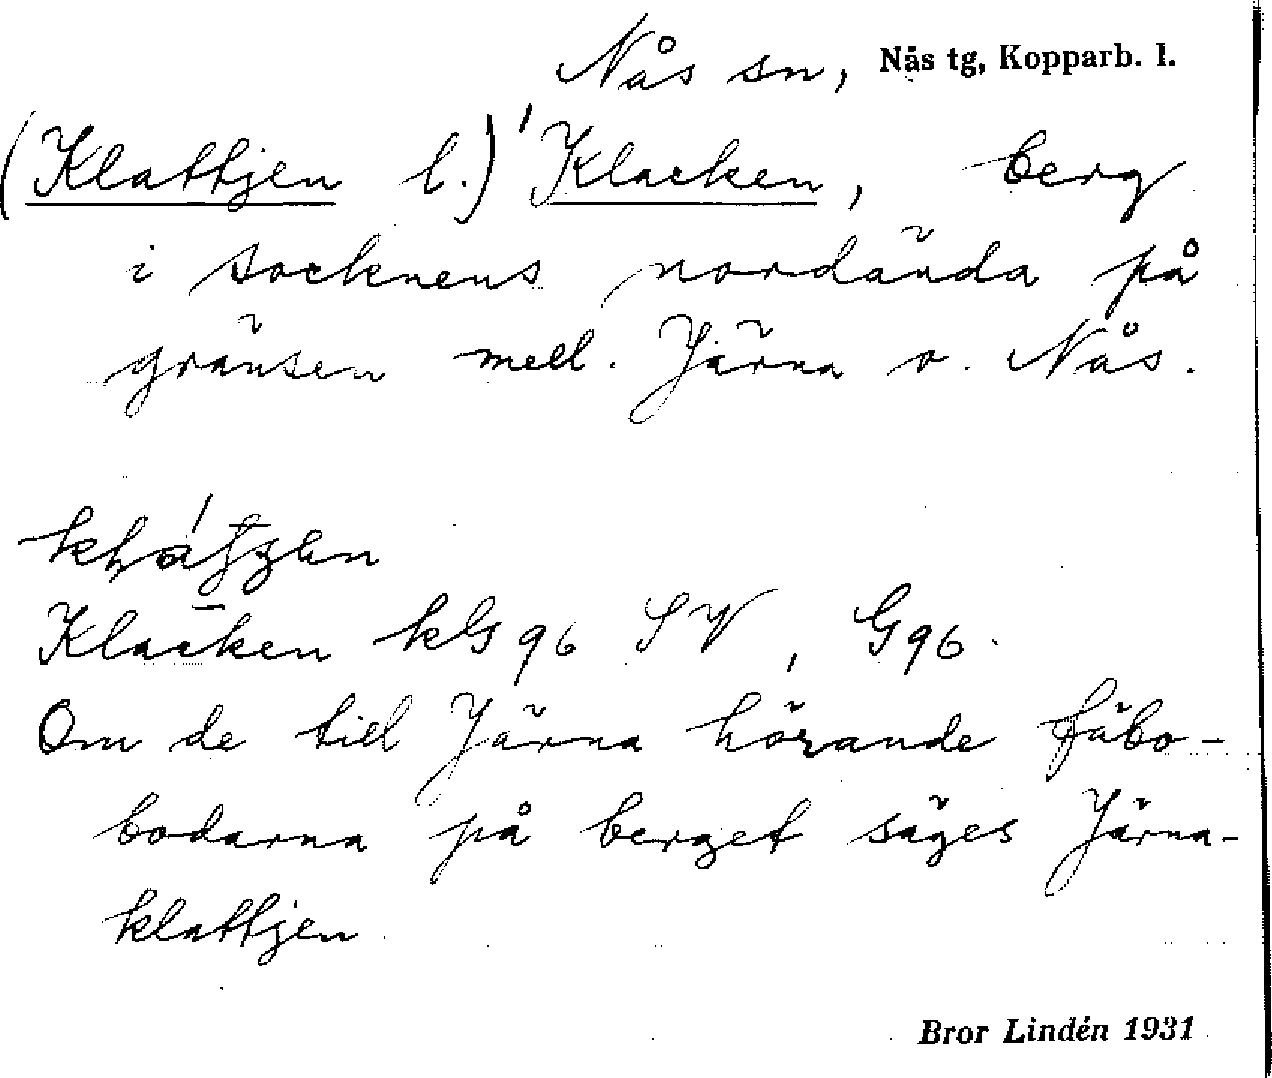 Nås sn, Nås tg, Kopparb. l.
(Klattjen l.) 'Klacken, berg
i socknens nordända på
gränsen mell. Järna o. Nås.
Klacken kG 96 SV, G96.
Om de till Järna hörande fäbo-
bodarna på berget säges Järna-
klattjen
Bror Lindén 1931